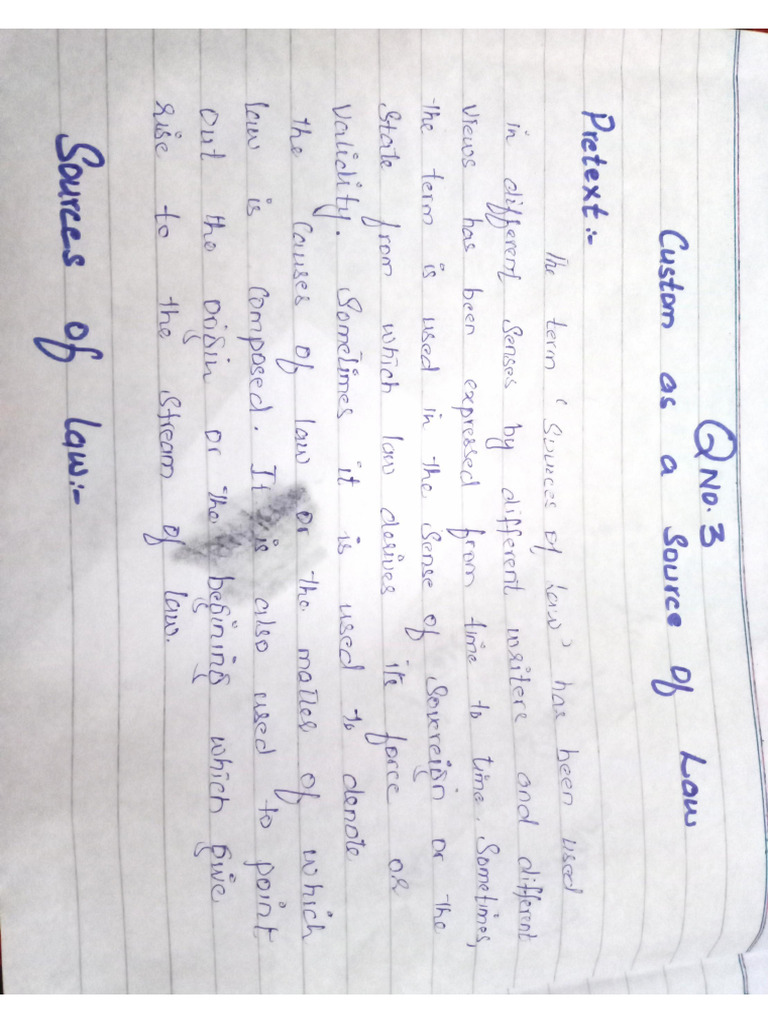 Q No. 3
Custom as a Source of Law
Pretext:-
The term 'Sources of law' has been used
in different senses by different writere and different
views has been expressed from time to time. Sometimes,
the term is used in the sense of sovereign or the
State from which law derives its force or
validity. Sometimes it is used to denote
the causes of law or the matter of which
law is composed. It is also used to point
out the origin or the begining which give
rise to the stream of law.
Sources of law:-